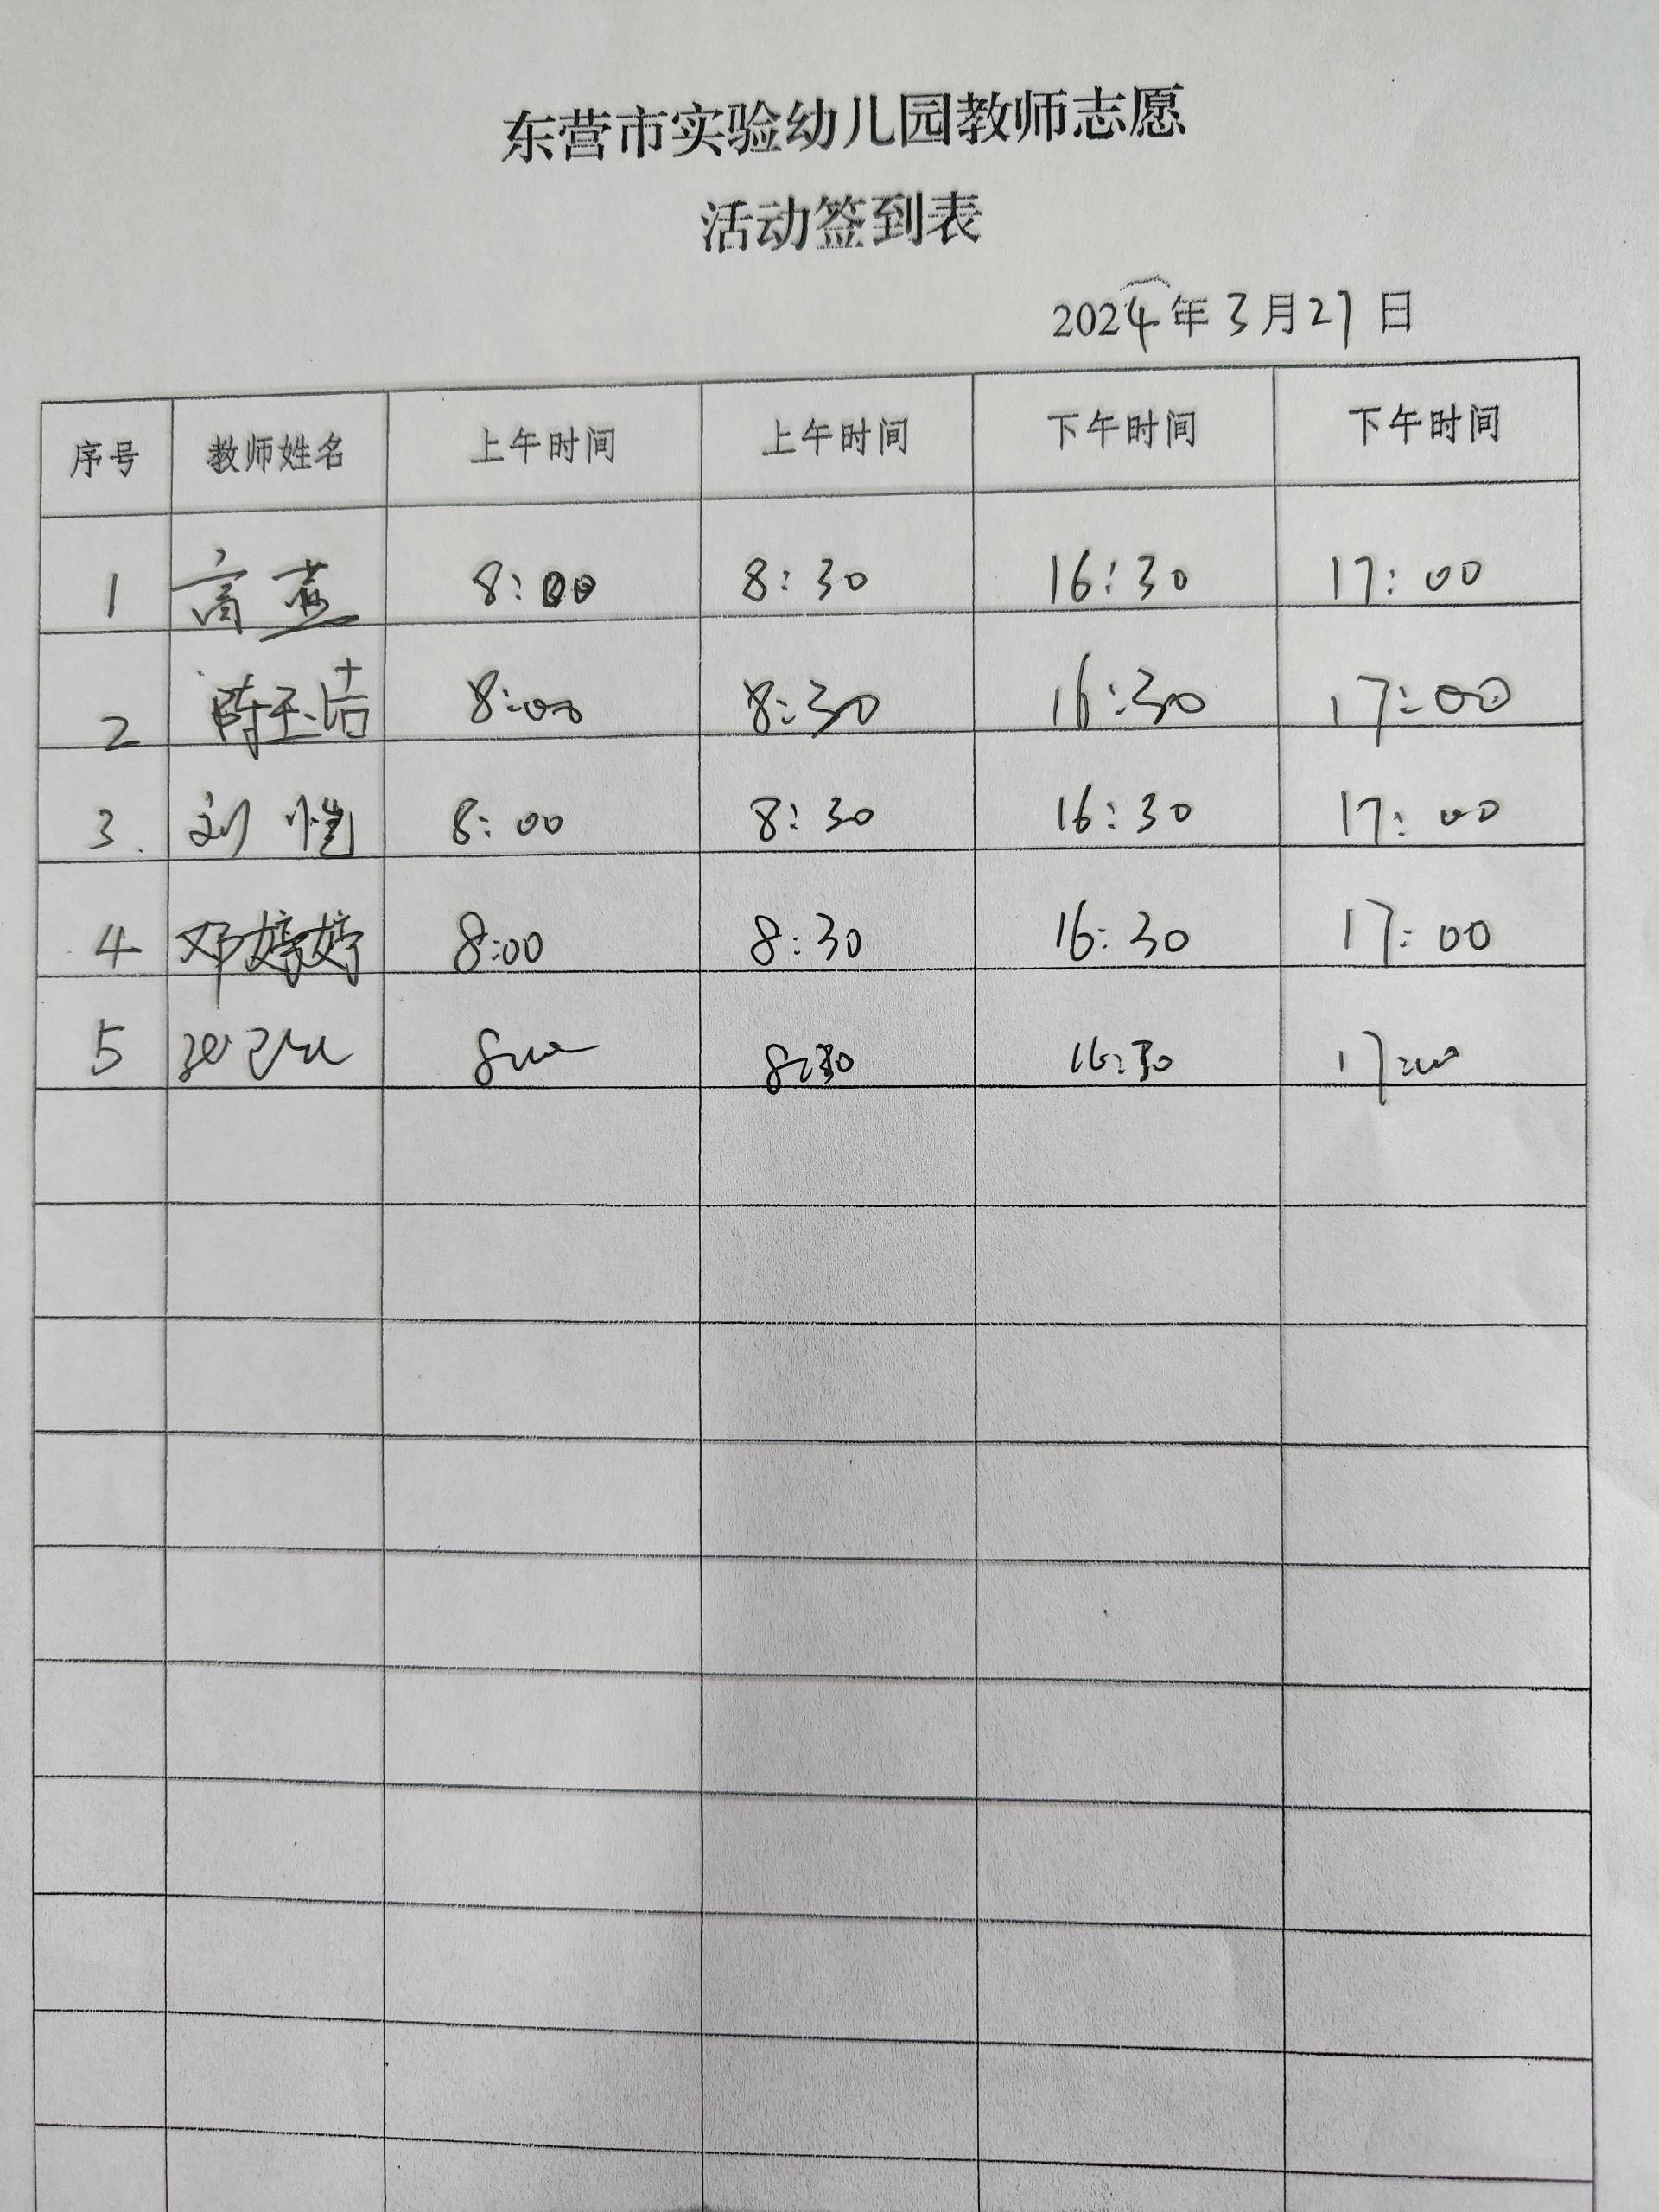 东营市实验幼儿园教师志愿
活动签到表
2024年3月27日
序号 教师姓名 上午时间 上午时间 下午时间 下午时间
1 高燕 8:00 8:30 16:30 17:00
2 陈玉洁 8:00 8:30 16:30 17:00
3. 刘恺 8:00 8:30 16:30 17:00
4 邓婷婷 8:00 8:30 16:30 17:00
5 8:00 8:30 16:30 17:00